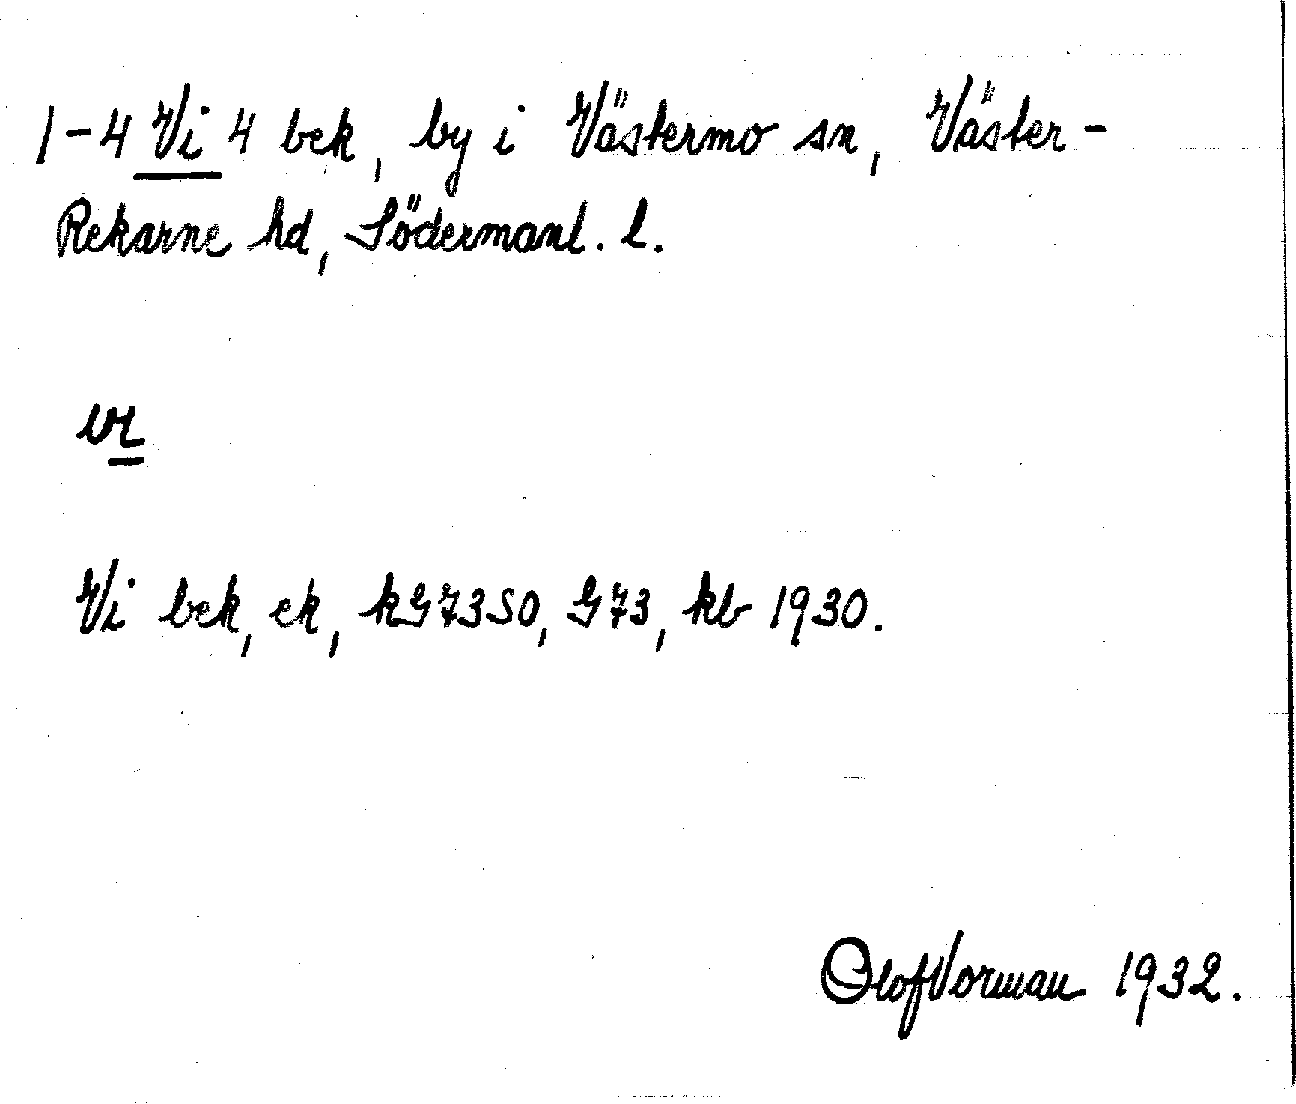 1-4 Vi 4 bek, by i Västermo sn, Väster-
Rekarne hd, Södermanl. l.
vi
Vi bek, ek, kG73SO, G73, kb 1930.
Olof Vorman 1932.